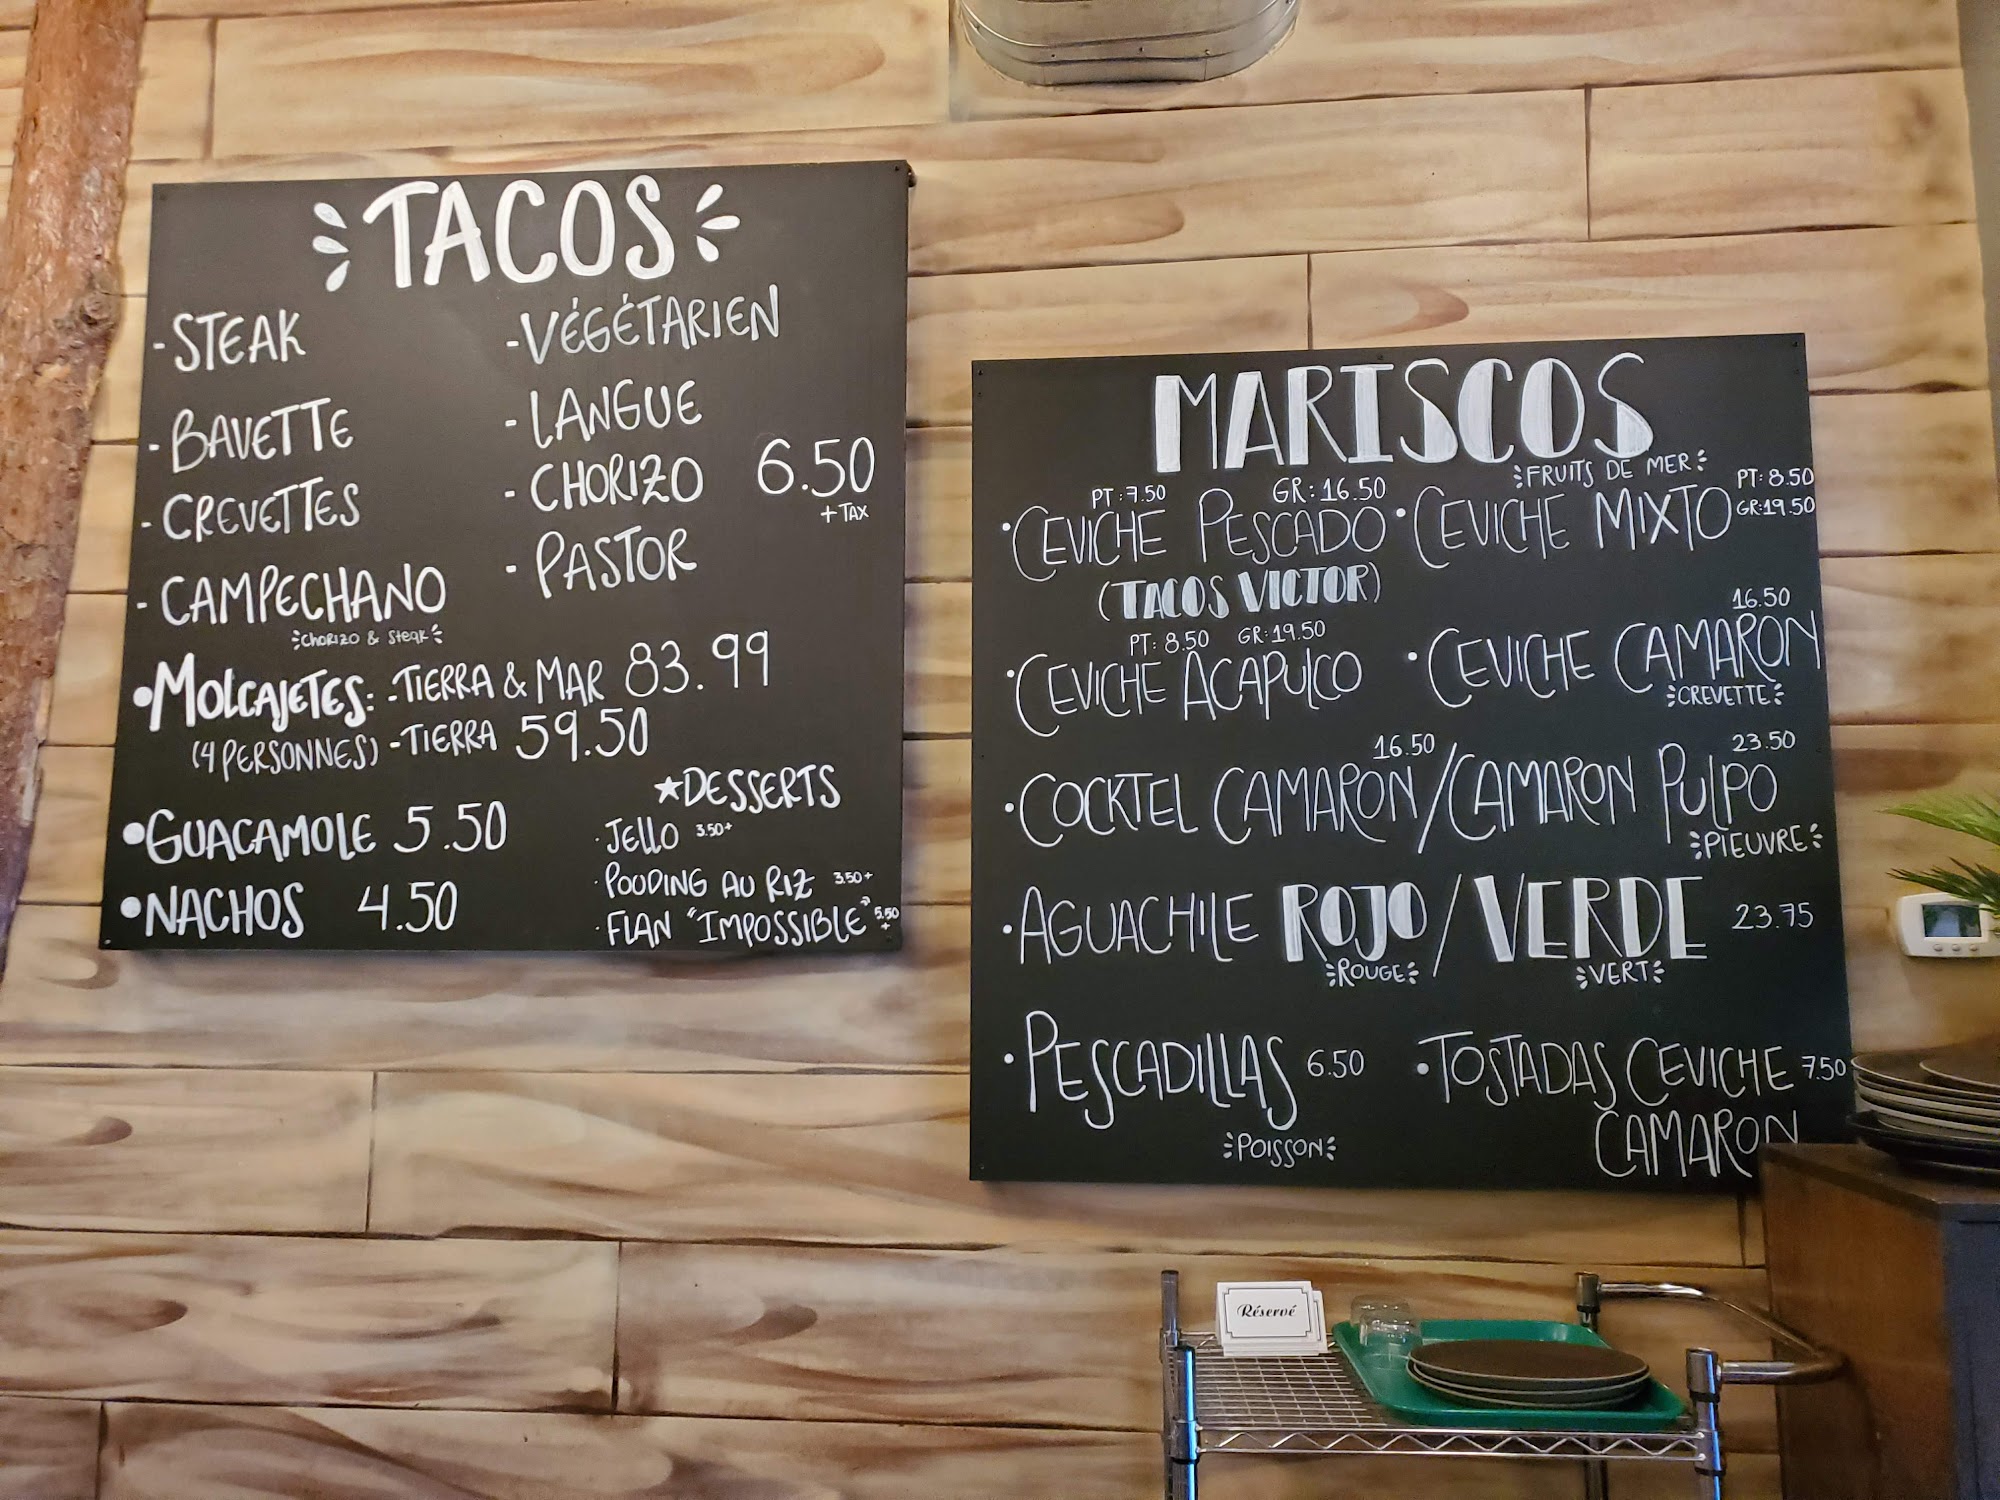 TACOS
- STEAK
- BAVETTE
- CREVETTES
- CAMPECHANO
CHORIZO & STEAK
- VÉGÉTARIEN
- LANGUE
- CHORIZO
- PASTOR
6.50
+ TAX
• MOLCAJETES: - TIERRA & MAR 83.99
(4 PERSONNES) - TIERRA 59.50
• GUACAMOLE 5.50
• NACHOS 4.50
★DESSERTS
· JELLO 3.50+
· POUDING AU RIZ 3.50+
· FLAN "IMPOSSIBLE" 5.50+
MARISCOS
FRUITS DE MER
PT: 7.50 GR: 16.50
• CEVICHE PESCADO
(TACOS VICTOR)
PT: 8.50
GR: 19.50
• CEVICHE MIXTO
PT: 8.50 GR: 19.50
• CEVICHE ACAPULCO
16.50
• CEVICHE CAMARON
CREVETTE
16.50 23.50
• COCKTEL CAMARON/CAMARON PULPO
PIEUVRE
• AGUACHILE ROJO/VERDE 23.75
ROUGE VERT
• PESCADILLAS 6.50
POISSON
• TOSTADAS CEVICHE 7.50
CAMARON
Réservé